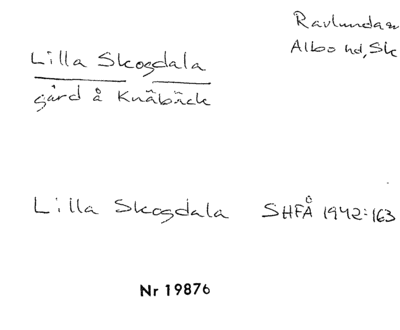 Ravlunda sn
Albo hd, Sk
Lilla Skogdala
gård å Knäbäck
Lilla Skogdala SHFÅ 1942:163
Nr 19876